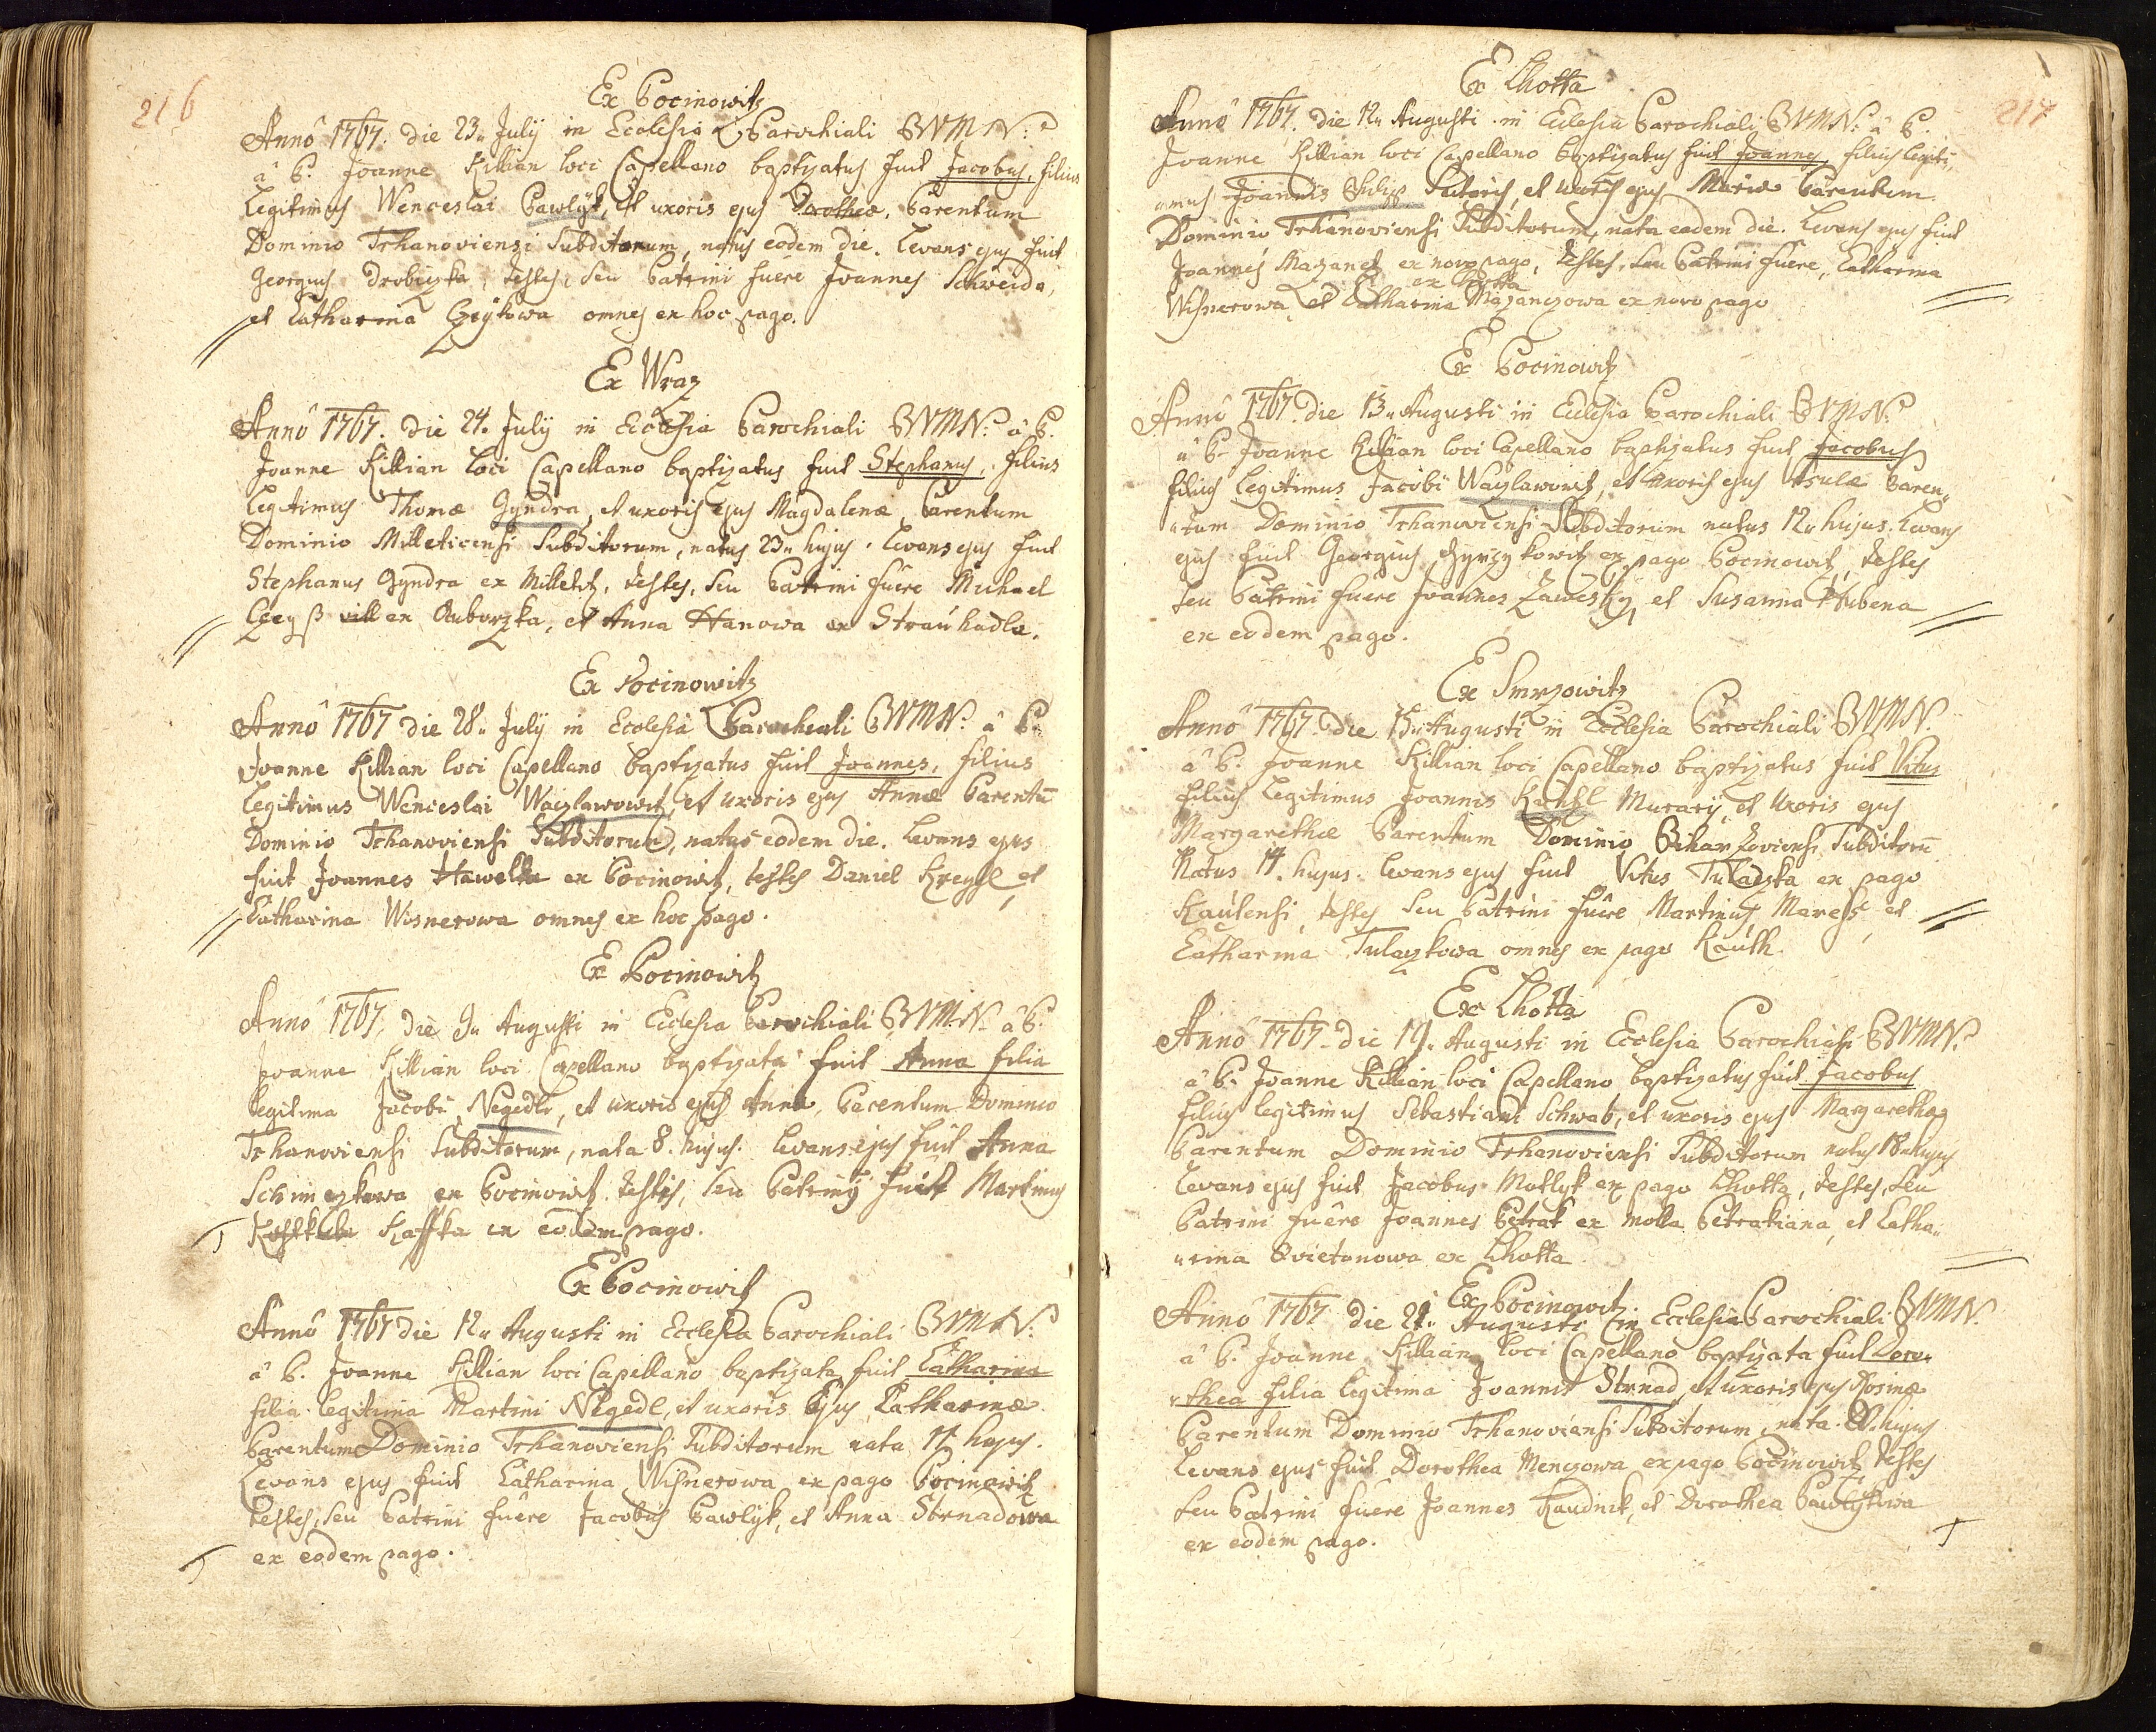 216
Ex Pocinowitz
Anno 1767. die 23. July in Ecclesia Parochiali BVMN:
a P. Joanne Killian loci Capellano baptizatus fuit Jacobus, filius
Legitimus Wenceslai Pawlyk, et uxoris ejus Dorotheæ, Parentum
Dominio Trhanoviensi Subditorum, natus eodem die. Levans ejus fuit
Georgius Drobiczka, testes, seu Patrini fuere Joannes Schweida,
et Catharina omnes ex hoc pago.
Ex Wraz
Anno 1767. die 24. July in Ecclesia Parochiali BVMN: a P.
Joanne Killian loci Capellano baptizatus fuit Stephanus, filius
Legitimus Thomæ Gyndra, et uxoris ejus Magdalenæ, Parentum
Dominio Milleticensi Subditorum, natus 23. hujus. Levans ejus fuit
Stephanus Gyndra ex Milletitz, testes, seu Patrini fuere Michael
ex et Anna Hanowa ex Strauhadla.
Ex Pocinowitz
Anno 1767 die 28. July in Ecclesia Parochiali BVMN: a P.
Joanne Killian loci Capellano baptizatus fuit Joannes, filius
Legitimus Wenceslai Waczlawowitz, et uxoris ejus Annæ Parentū
Dominio Trhanoviensi Subditorum, natus eodem die. Levans ejus
fuit Joannes Hawelka ex Pocinowitz, testes Daniel Kreygl, et
Catharina Wisnerowa omnes ex hoc pago.
Ex Pocinowitz
Anno 1767, die 9. Augusti in Ecclesia Parochiali BVMN: a P.
Joanne Killian loci Capellano baptizata fuit Anna filia
legitima Jacobi Negedli, et uxoris ejus Annæ, Parentum Dominio
Trhanoviensi Subditorum, nata 8. hujus. Levans ejus fuit Anna
ex Pocinowitz. testes, seu Patriny fuit Martinus
Kaffka ex eodem pago.
Ex Pocinowitz
Anno 1767 die 12. Augusti in Ecclesia Parochiali BVMN:
a P. Joanne Killian loci Capellano baptizata fuit Catharina
filia legitima Martini Negedl, et uxoris Ejus Catharinæ.
Parentum Dominio Trhanoviensi Subditorum nata 11. hujus.
Levans ejus fuit Catharina Wisnerowa ex pago Pocinowitz
testes, seu Patrini fuere Jacobus Pawlyk, et Anna Strnadowa
ex eodem pago.
217
Ex Lhotta
Anno 1767. die 12. Augusti in Ecclesia Parochiali BVMN: a P.
Joanne Killian loci Capellano baptizatus fuit Joannes, filius legiti„
„mus Joannis Sutoris, et uxoris ejus Mariæ Parentum
Dominio Trhanoviensi Subditorum, nata eodem die. Levans ejus fuit
Joannes Mazanetz ex novo pago, testes, seu Patrini fuere, Catharina
ex Lhotta
Wisnerowa et Catharina Mazanczowa ex novo pago
Ex Pocinowitz
Anno 1767. die 13. Augusti in Ecclesia Parochiali BVMN:
a P. Joanne Killian loci Capellano baptizatus fuit Jacobus
filius Legitimus Jacobi Waczlawowitz, et uxoris ejus Ursulæ Paren„
„tum Dominio Trhanoviensi Subditorum natus 12. hujus. Levans
ejus fuit Georgius Gyrzykowitz ex pago Pocinowitz, testes
seu Patrini fuere Joannes Zawesky, et Susanna Hubena
ex eodem pago.
Ex Smrzowitz
Anno 1767. die 15. Augusti in Ecclesia Parochiali BVMN.
a P. Joanne Killian loci Capellano baptizatus fuit Vitus
filius Legitimus Joannis Murarij, et Uxoris ejus
Margarethæ Parentum Dominio Subditorū
Natus 14. hujus. Levans ejus fuit Vitus Tulaczka ex pago
Kautensi, testes seu Patrini fuere Martinus Maress, et
Catharina Tulaczkowa omnes ex pago Kauth.
Ex Lhotta
Anno 1767. die 19. Augusti in Ecclesia Parochiali BVMN:
a P. Joanne Killian loci Capellano baptizatus fuit Jacobus
filius legitimus Sebastiani Schwab, et uxoris ejus Margarethæ
Parentum Dominio Trhanoviensi Subditorum natus 18. hujus
Levans ejus fuit Jacobus Motlyk ex pago Lhotta, testes, seu
Patrini fuere Joannes Petrak ex molla Petrakiana, et Catha„
„rina Swietonowa ex Lhotta
Ex Pocinowitz
Anno 1767 die 21. Augusti in Ecclesia Parochiali BVMN.
a P. Joanne Killian loci Capellano baptizata fuit Doro„
„thea filia legitima Joannis Strnad, et uxoris ejus Rosinæ
Parentum Dominio Trhanoviensi Subditorum, nata 20. hujus
Levans ejus fuit Dorothea Menczowa ex pago Pocinowitz, testes
seu Patrini fuere Joannes Raudnik, et Dorothea Pawlykowa
ex eodem pago.